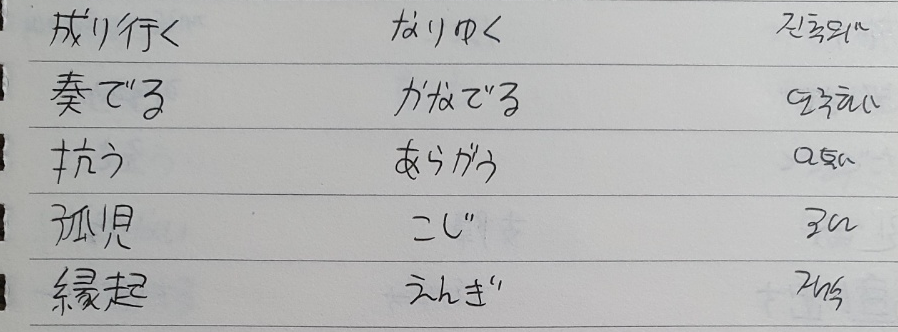 成り行く なりゆく 진척되다
奏でる かなでる 연주하다
抗う あらがう
孤児 こじ 고아
縁起 えんぎ